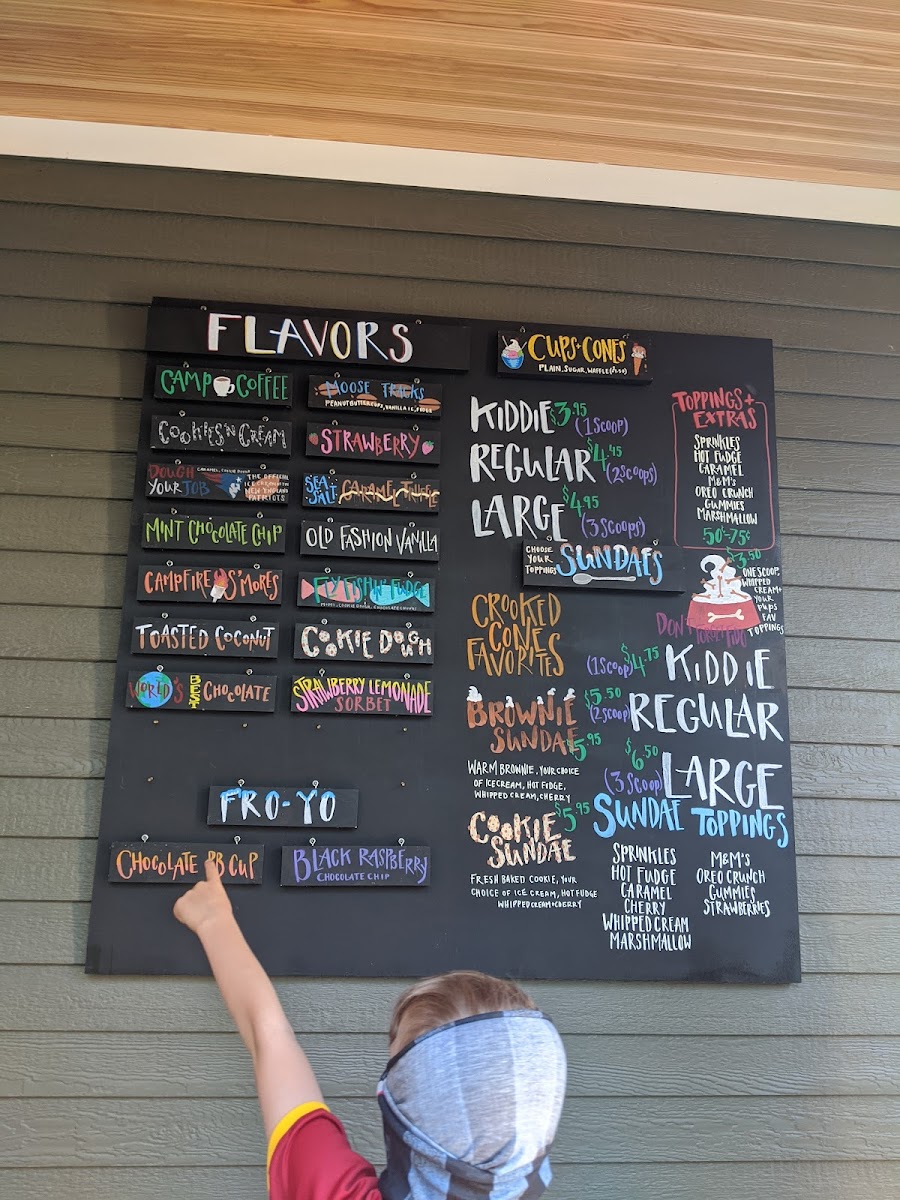 FLAVORS
CAMP COFFEE
COOKIES'N CREAM
DOUGH
YOUR JOB
THE OFFICIAL
ICE CREAM OF THE
NEW ENGLAND
PATRIOTS
MINT CHOCOLATE CHIP
CAMPFIRE S'MORES
TOASTED COCONUT
WORLD'S BEST CHOCOLATE
MOOSE TRACKS
PEANUT BUTTER CUPS, VANILLA I.C, FUDGE
STRAWBERRY
SEA SALT CARAMEL TRUFFLE
OLD FASHION VANILLA
FLY FISHIN' FUDGE
COOKIE DOUGH
STRAWBERRY LEMONADE
SORBET
FRO-YO
CHOCOLATE PB CUP
BLACK RASPBERRY
CHOCOLATE CHIP
CUPS+CONES
PLAIN, SUGAR, WAFFLE
KIDDIE $3.95 (1 SCOOP)
REGULAR $4.45 (2 SCOOPS)
LARGE $4.95 (3 SCOOPS)
TOPPINGS+
EXTRAS
SPRINKLES
HOT FUDGE
CARAMEL
M&M'S
OREO CRUNCH
GUMMIES
MARSHMALLOW
50¢-75¢
CHOOSE
YOUR
TOPPINGS
SUNDAES
$3.50
ONE SCOOP,
WHIPPED
CREAM+
YOUR
PUPS
FAV
TOPPING
DON'T FORGET FIDO
CROOKED
CONES
FAVORITES
BROWNIE
SUNDAE $5.95
WARM BROWNIE, YOUR CHOICE
OF ICE CREAM, HOT FUDGE,
WHIPPED CREAM, CHERRY
COOKIE $5.95
SUNDAE
FRESH BAKED COOKIE, YOUR
CHOICE OF ICE CREAM, HOT FUDGE
WHIPPED CREAM+CHERRY
(1 SCOOP) $4.75 KIDDIE
$5.50 (2 SCOOP) REGULAR
$6.50 (3 SCOOP) LARGE
SUNDAE TOPPINGS
SPRINKLES
HOT FUDGE
CARAMEL
CHERRY
WHIPPED CREAM
MARSHMALLOW
M&M'S
OREO CRUNCH
GUMMIES
STRAWBERRIES